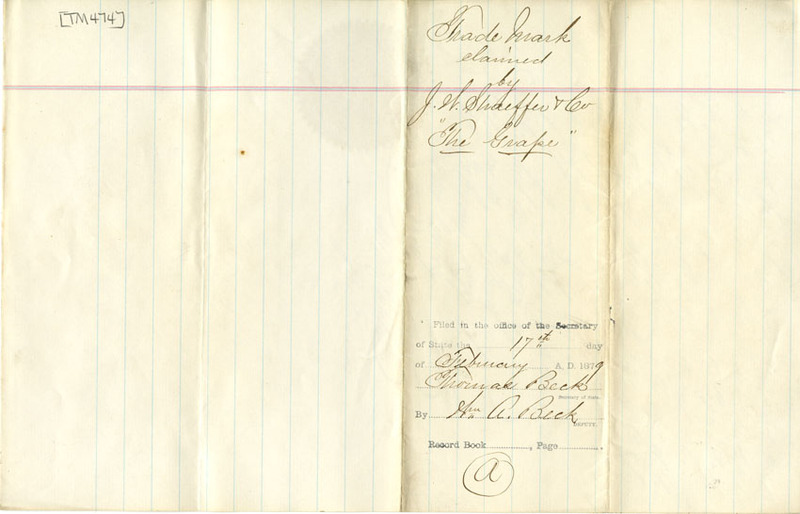 [TM474]
Trade Mark
claimed
by
J. W. Shaeffer & Co
"The Grape"
Filed in the office of the Secretary
of State the 17th day
of February A. D. 1879
Thomas Beck
Secretary of State.
By Wm A. Beck
DEPUTY.
Record Book ............, Page ............
A